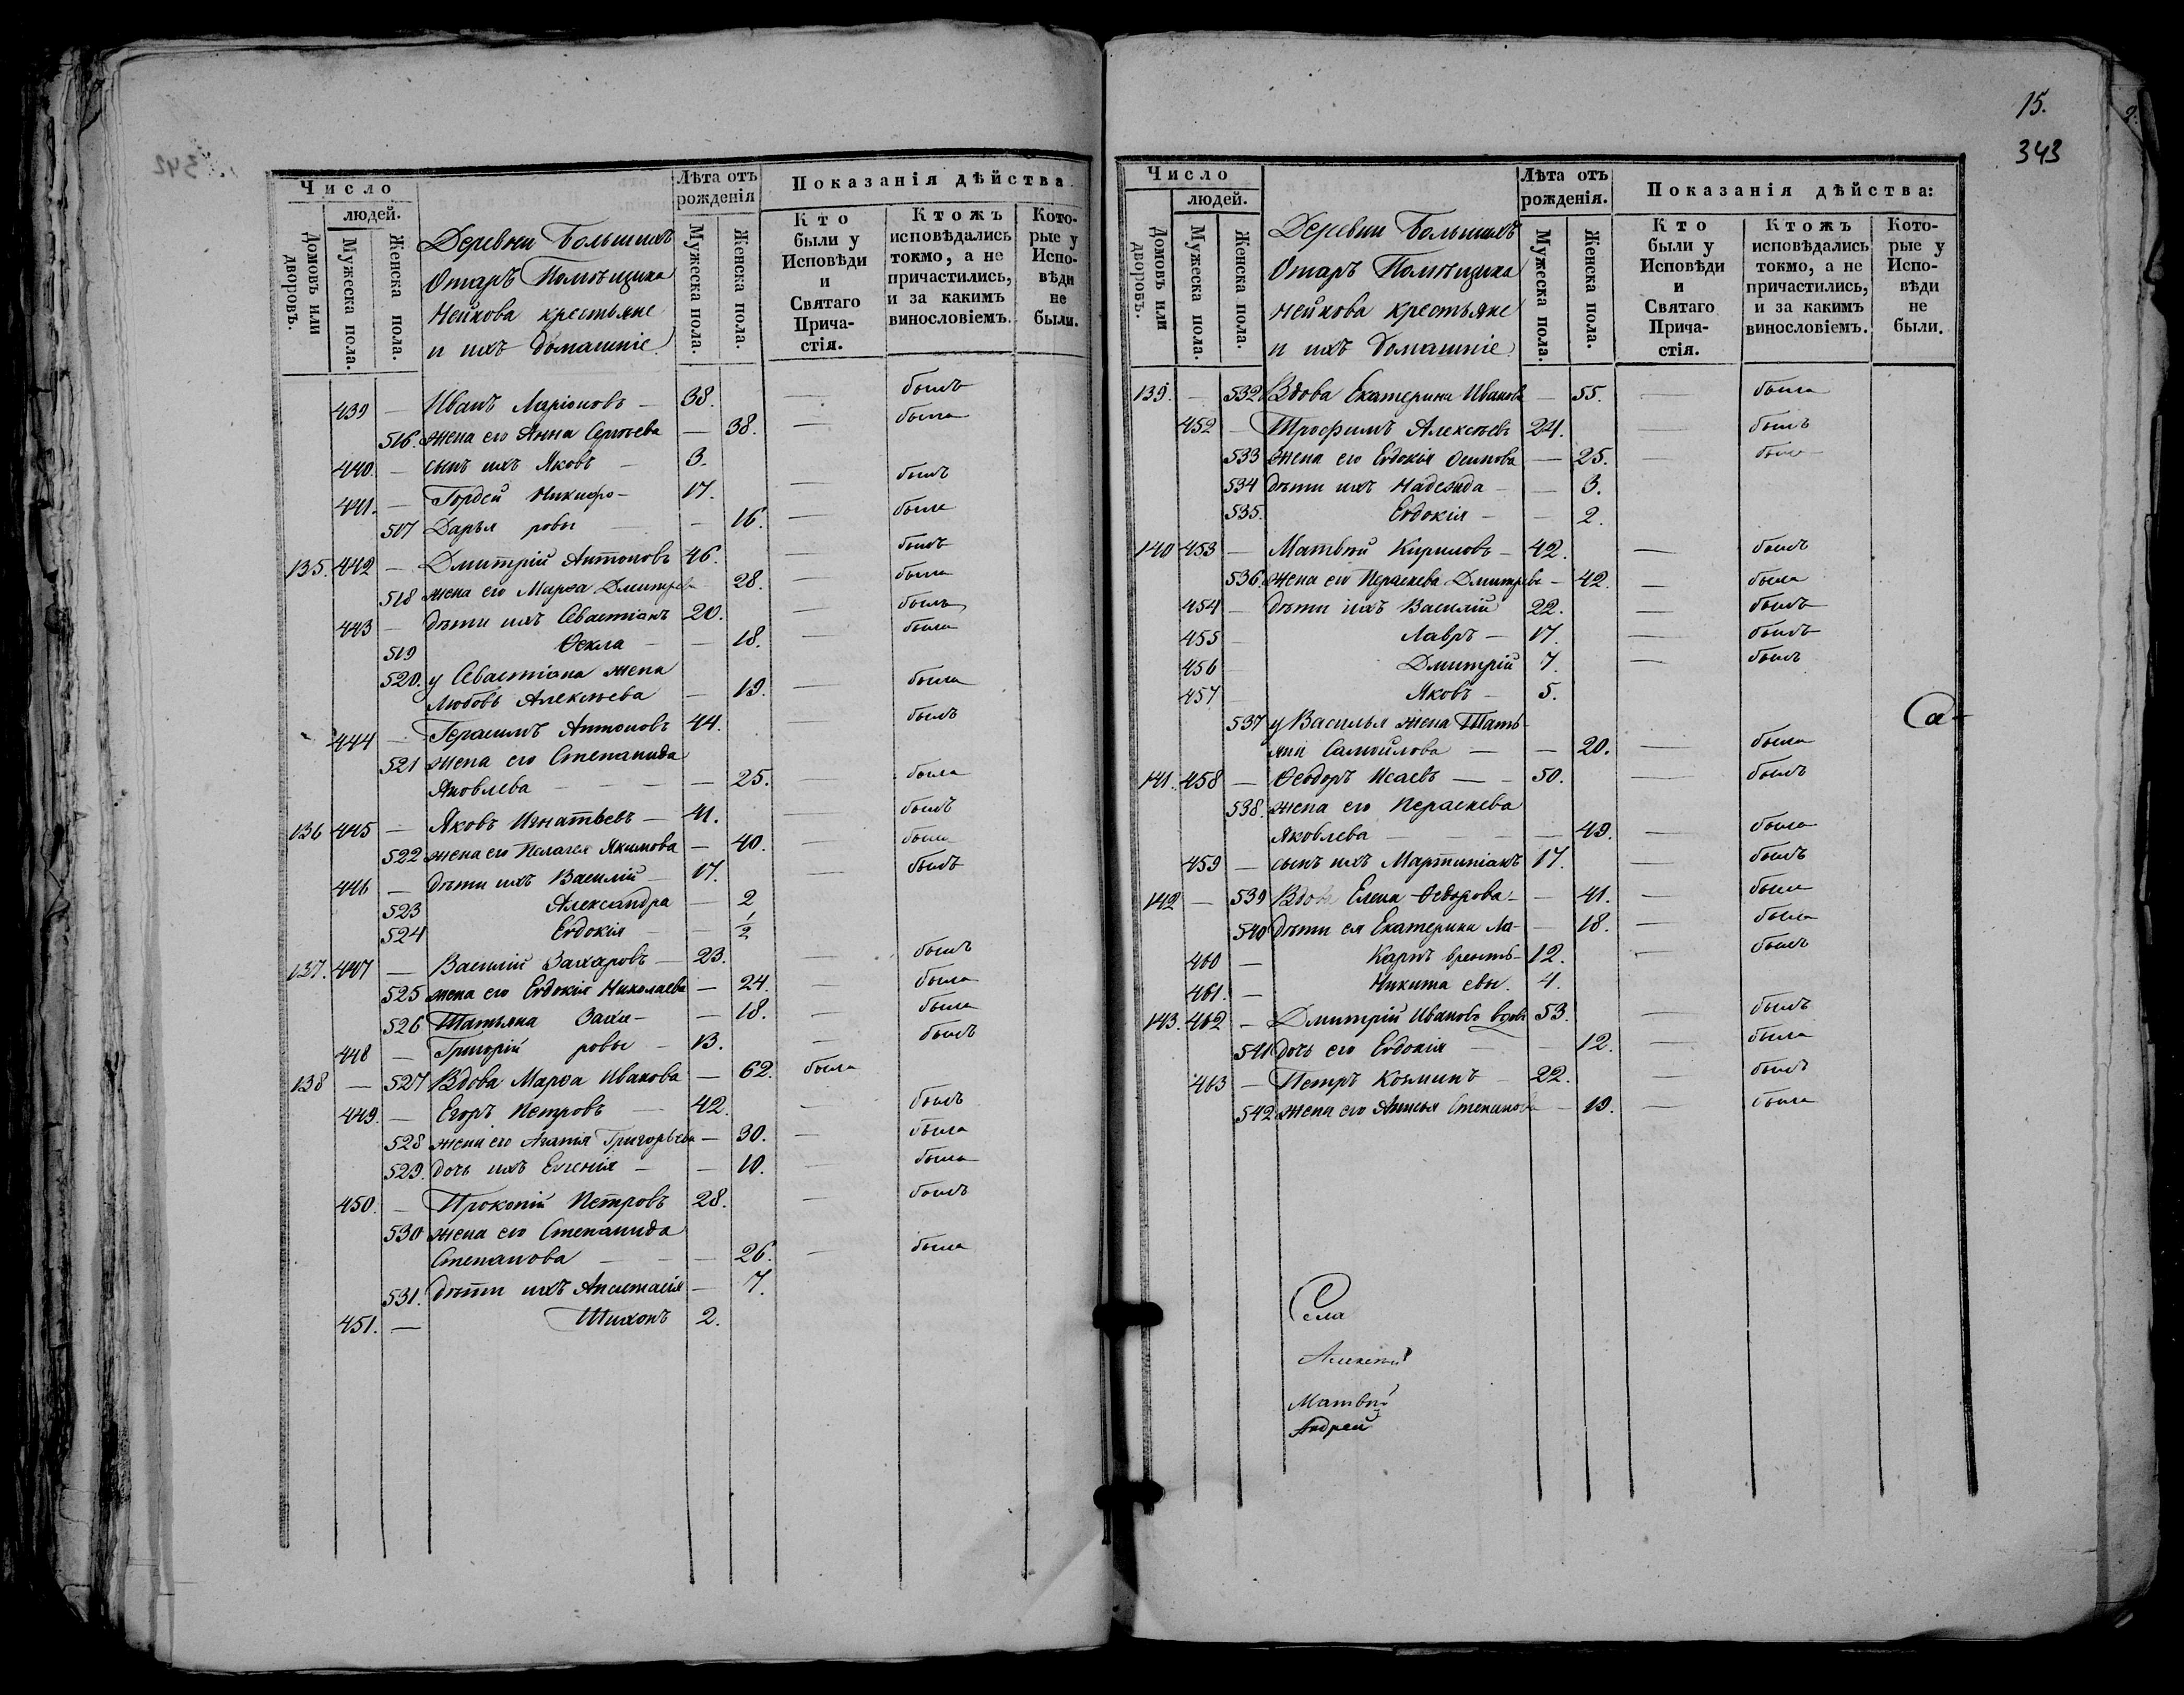 Число
людей.
Домовъ или дворовъ.
Мужеска пола.
Женска пола.
Деревни Большихъ
Отаръ Помѣщика
Нейкова крестьяне
и ихъ домашніе
Лѣта отъ рожденія
Мужеска пола.
Женска пола.
Показанія дѣйства
Кто были у Исповѣди и Святаго Прича-стія.
Ктожъ исповѣдались токмо, а не причастились, и за какимъ винословіемъ.
Кото-рые у Испо-вѣди не были.
439 — Иванъ Ларіоновъ — 38. — былъ
516. жена его Анна Сергѣева — 38. — была
440. — сынъ ихъ Яковъ — 3.
441. — Гордей Никифо- 17. — былъ
517 Дарья ровы — 16. — была
135. 442 — Дмитрій Антоновъ 46. — былъ
518 жена его Марѳа Дмитрева 28. — была
443 — дѣти ихъ Севастіанъ 20. — былъ
519 Ѳекла — 18. — была
520. у Севастіана жена
Любовь Алексѣева — 19. — была
444 — Герасимъ Антоновъ 44. — былъ
521 жена его Степанида
Яковлева — 25. — была
136 445 — Яковъ Игнатьевъ — 41. — былъ
522 жена его Пелагея Якимова — 40. — была
446 — дѣти ихъ Василій — 17. — былъ
523 Александра — 2
524 Евдокія — 1/2
137. 447 — Василій Захаровъ — 23. — былъ
525 жена его Евдокія Николаева — 24. — была
526 Татьяна Заха- — 18. — была
448 — Григорій ровы — 13. — былъ
138 — 527 Вдова Марѳа Иванова — 62. была
449. — Егоръ Петровъ — 42. — былъ
528 жена его Агапія Григорьева — 30. — была
529. дочь ихъ Евгенія — — 10. — была
450. — Прокопій Петровъ 28. — былъ
530 жена его Степанида
Степанова — — 26. — была
531. дѣти ихъ Анастасія — 7.
451. — Тихонъ 2.
15.
343
Число
людей.
Домовъ или дворовъ.
Мужеска пола.
Женска пола.
Деревни Большихъ
Отаръ Помѣщика
Нейкова крестьяне
и ихъ домашніе
Лѣта отъ рожденія.
Мужеска пола.
Женска пола.
Показанія дѣйства:
Кто были у Исповѣди и Святаго Прича-стія.
Ктожъ исповѣдались токмо, а не причастились, и за какимъ винословіемъ.
Кото-рые у Испо-вѣди не были.
139. — 532 Вдова Екатерина Иванова — 55. была
452 — Трофимъ Алексѣевъ 24. — былъ
533 жена его Евдокія Осипова — 25. — была
534 дѣти ихъ Надежда — — 3.
535. Евдокія — — 2.
140 453 — Матвѣй Кириловъ — 42. — былъ
536. жена его Параскева Дмитрева — 42. — была
454 — дѣти ихъ Василій 22. — былъ
455 — Лавръ — 17. — былъ
456 Дмитрій 7. — былъ
457 Яковъ — 5.
537 у Василья жена Тать-
яна Самойлова — — 20. — была
141. 458 — Ѳеодоръ Исаевъ — 50. — былъ
538. жена его Параскева
Яковлева — — 49. — была
459 — сынъ ихъ Мартиніанъ 17. — былъ
142 — 539 Вдова Елена Ѳедорова — — 41. — была
540 дѣти ея Екатерина Ла- — 18. — была
460 — Карпъ врентъ- 12. — былъ
461. — Никита евы. 4.
143. 462 — Дмитрій Ивановъ вдовъ 53. — былъ
541 дочь его Евдокія — — 12. — была
463 — Петръ Козминъ 22. — былъ
542 жена его Анисья Степанова — 19. — была
Села
Алексѣй
Матвѣй
Андрей